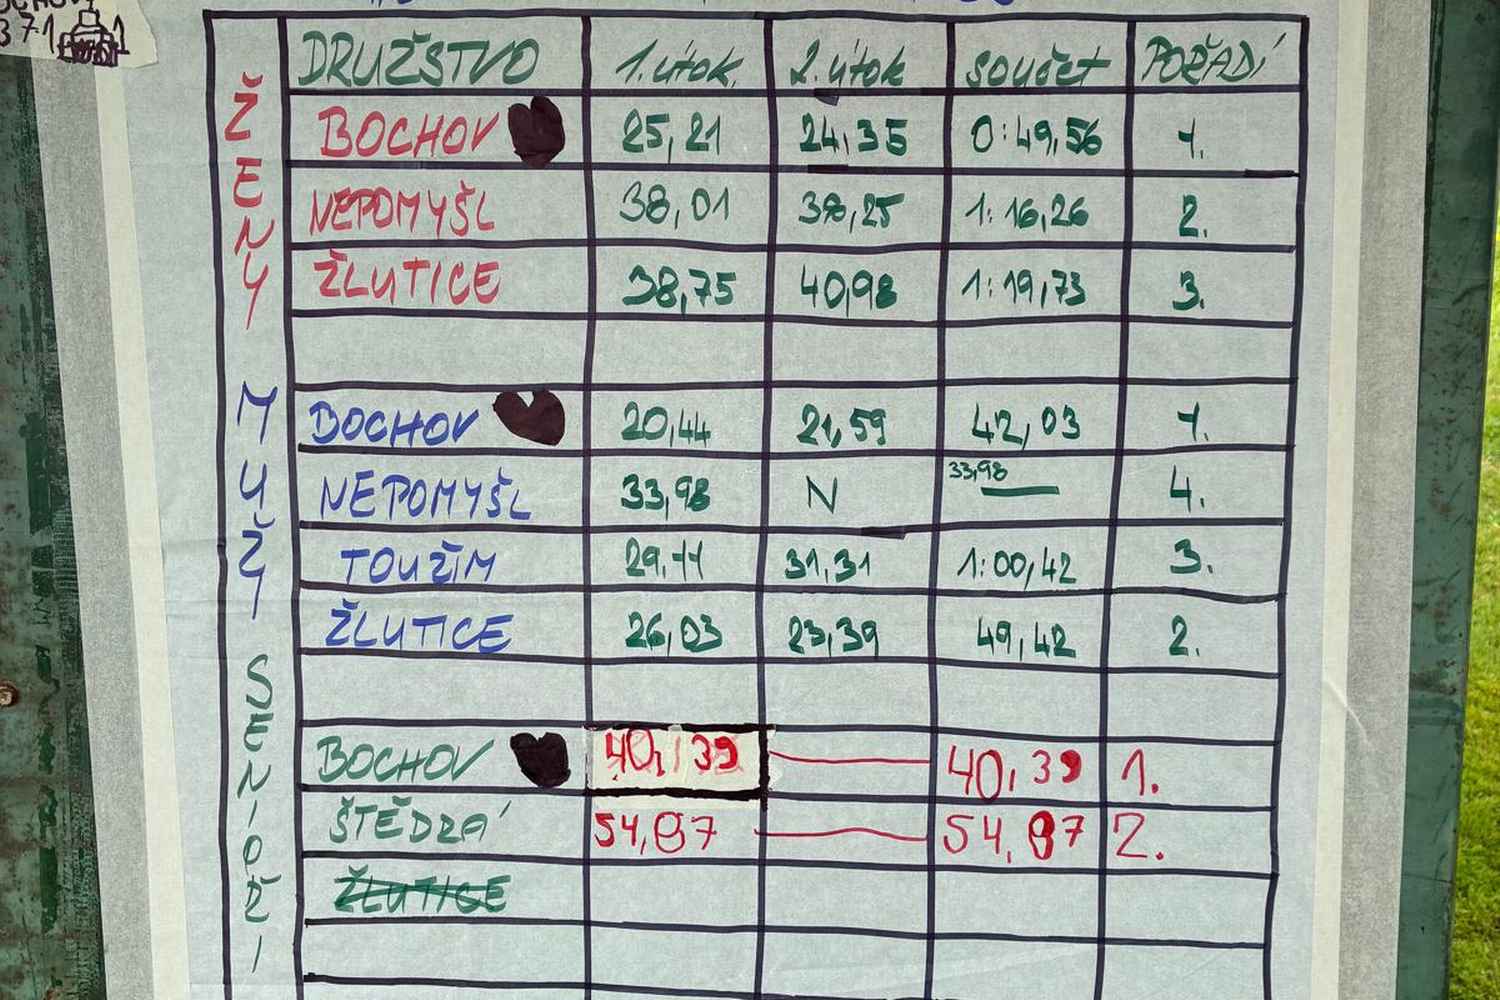 371
DRUŽSTVO 1. útok. 2. útok součet POŘADÍ
ŽENY
BOCHOV 25,21 24,35 0:49,56 1.
NEPOMYŠL 38,01 38,25 1:16,26 2.
ŽLUTICE 38,75 40,98 1:19,73 3.
MUŽI
BOCHOV 20,44 21,59 42,03 1.
NEPOMYŠL 33,98 N 33,98 4.
TOUŽIM 29.11 31,31 1:00,42 3.
ŽLUTICE 26,03 23,39 49,42 2.
SENIOŘI
BOCHOV 40,39 40,39 1.
ŠTĚDRÁ 54,87 54,87 2.
ŽLUTICE